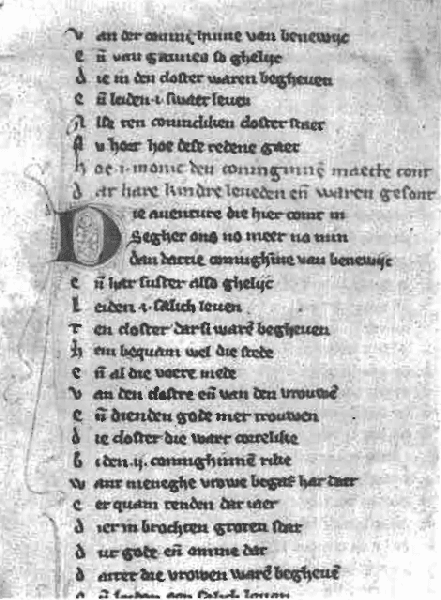 v an der coninghinne van benewijc
e n̄ van gannes so ghelijc
d ie in den closter waren begheuen
e n̄ leiden .i. suaer leuen
a lse ten conincliken closter staet
N v hoert hoe dese redene gaet
h oe .i. monic den coninginnē maecte cont
d at hare kindre leueden eñ waren gesont
Die auenture die hier comt in
Seghet ons no meer no min
dan dattie coninghinne van benewijc
e n̄ har suster also ghelijc
l eiden .i. salich leuen
T en closter dar si warē begheuen
h em bequam wel die stede
e n̄ al die voere mede
v an den clostre eñ van den vrouwē
e n̄ dienden gode met trouwen
d ie closter die waert costelike
b i den .ij. coninghinnē rike
w ant meneghe vrowe begaf har daer
e er quam renden dar naer
d ier in brochten groten scat
d ur gode eñ omme dat
d atter die vrowen warē begheuē
e n̄ leiden een salich leuen